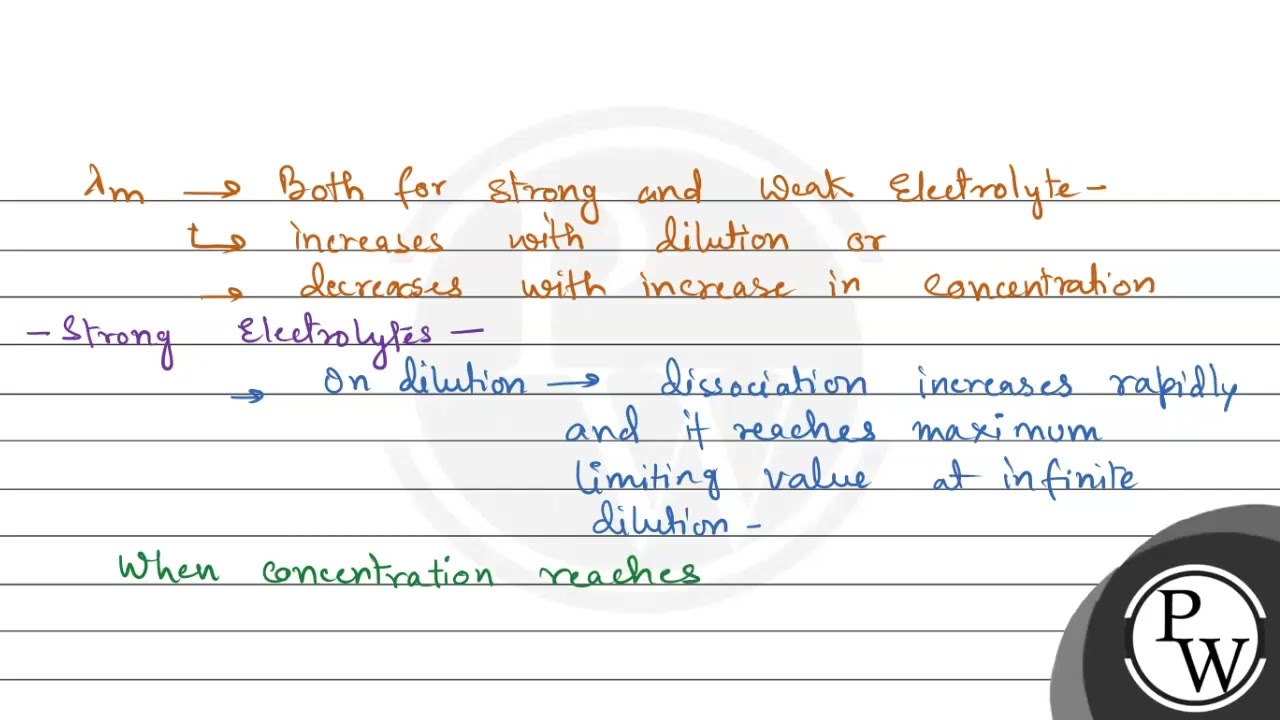 λm → Both for strong and weak Electrolyte -
↳ increases with dilution or
→ decreases with increase in concentration
- Strong Electrolytes -
→ on dilution → dissociation increases rapidly
and it reaches maximum
limiting value at infinite
dilution -
When concentration reaches
PW